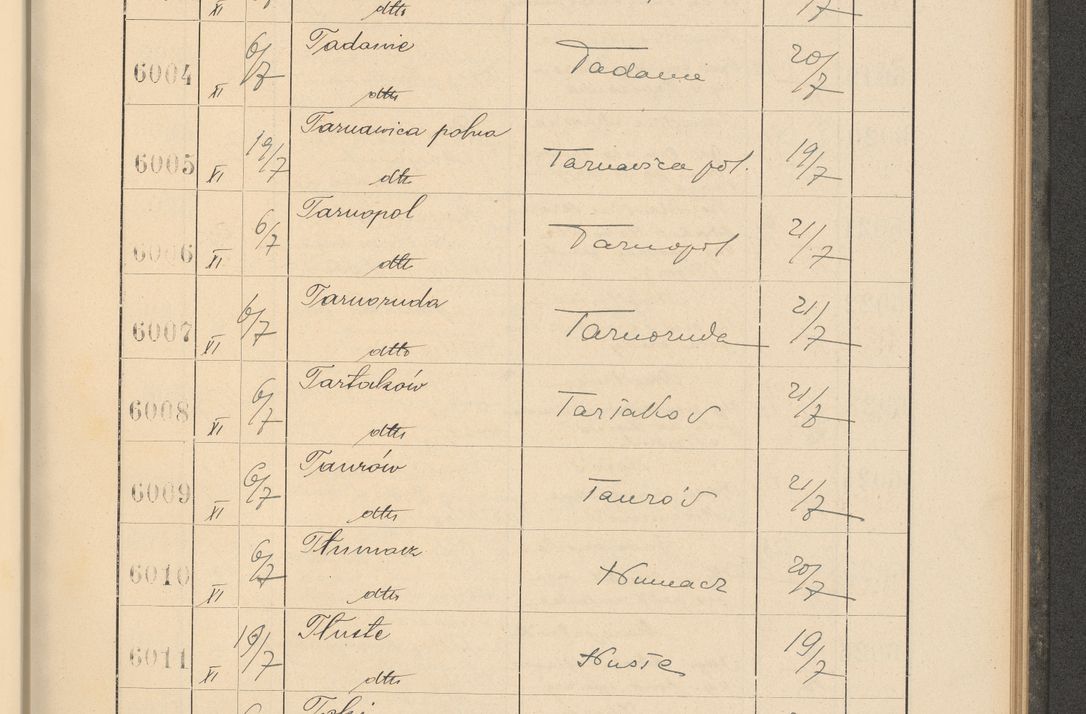 XI dtto 17
6004 XI 6/7 Tadanie dtto Tadanie 20/7
6005 XI 19/7 Tarnawica polna dtto Tarnawica pol. 19/7
6006 XI 6/7 Tarnopol dtto Tarnopol 21/7
6007 XI 6/7 Tarnoruda dtto Tarnoruda 21/7
6008 XI 6/7 Tartaków dtto Tartaków 21/7
6009 XI 6/7 Taurów dtto Taurów 21/7
6010 XI 6/7 Tłumacz dtto Tłumacz 20/7
6011 XI 19/7 Tłuste dtto Tłuste 19/7